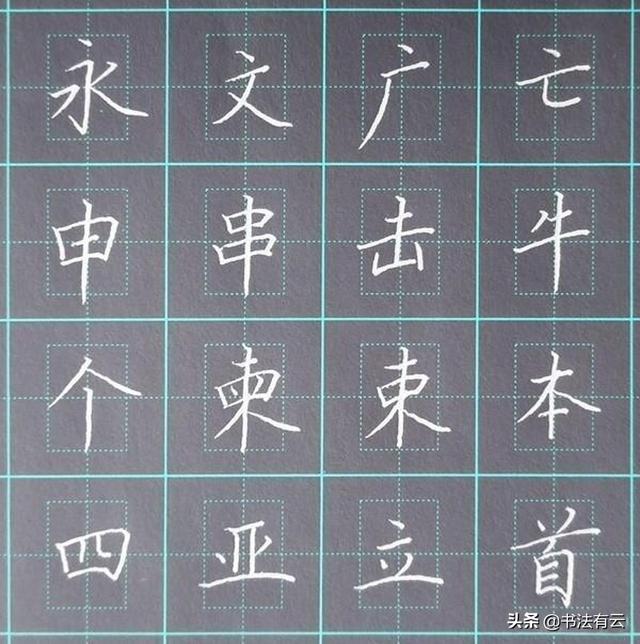 永文广亡
申串击牛
个柬束本
四亚立首
头条 @书法有云